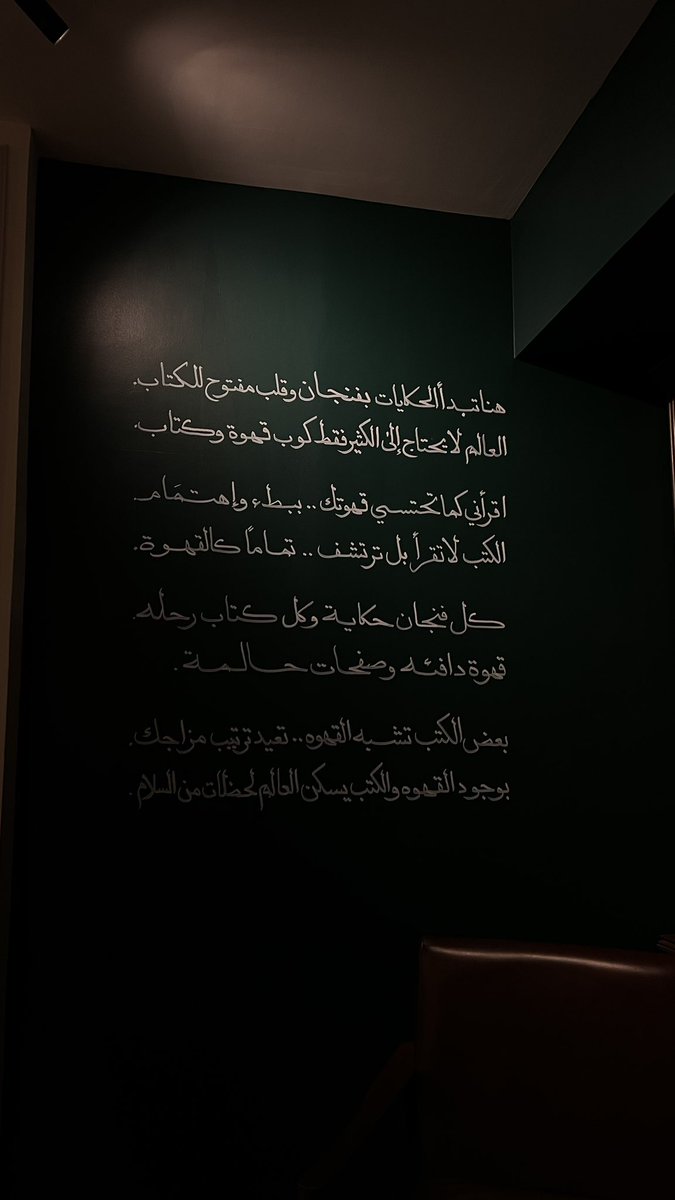 هنا تبدأ الحكايات بفنجان وقلب مفتوح للكتاب.
العالم لا يحتاج إلى الكثير فقط كوب قهوة وكتاب.
اقرأني كما تحتسي قهوتك .. ببطء وإهتمَام.
الكتب لا تقرأ بل ترتشف .. تماماً كالقهوة.
كل فنجان حكاية وكل كتاب رحله.
قهوة دافئه وصفحات حالمة.
بعض الكتب تشبه القهوه .. تعيد ترتيب مزاجك.
بوجود القهوه والكتب يسكن العالم لحظات من السلام.